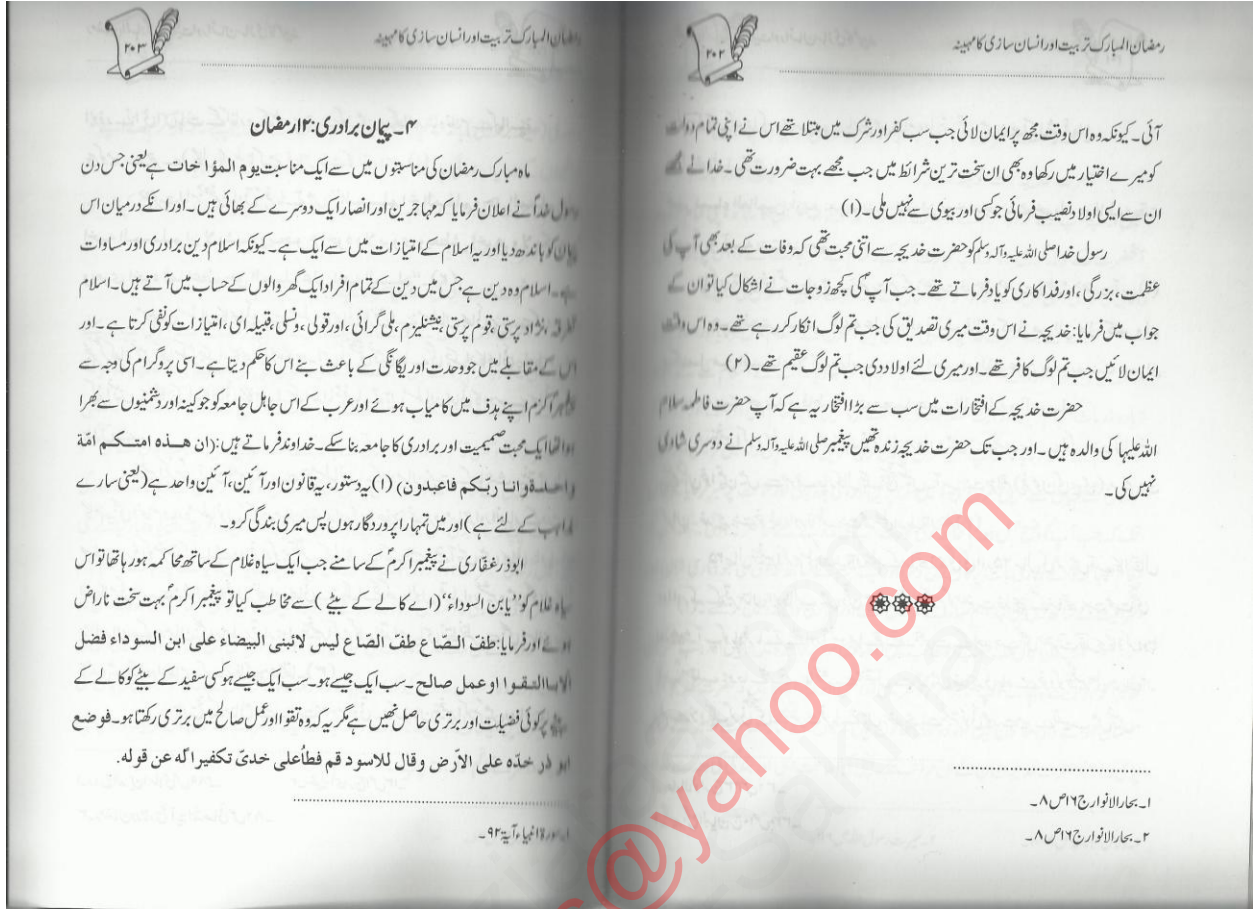 رمضان المبارک تربیت اور انسان سازی کا مہینہ
۲۰۲
آئی۔ کیونکہ وہ اس وقت مجھ پر ایمان لائی جب سب کفر اور شرک میں مبتلا تھے اس نے اپنی تمام دولت
کو میرے اختیار میں رکھا وہ بھی ان سخت ترین شرائط میں جب مجھے بہت ضرورت تھی۔ خدا نے مجھے
ان سے ایسی اولاد نصیب فرمائی جو کسی اور بیوی سے نہیں ملی۔ (۱)
رسول خدا صلی اللہ علیہ وآلہ وسلم کو حضرت خدیجہ سے اتنی محبت تھی کہ وفات کے بعد بھی آپ کی
عظمت، بزرگی، اور فداکاری کو یاد فرماتے تھے۔ جب آپؐ کی کچھ زوجات نے اشکال کیا تو ان کے
جواب میں فرمایا: خدیجہ نے اس وقت میری تصدیق کی جب تم لوگ انکار کر رہے تھے۔ وہ اس وقت
ایمان لائیں جب تم لوگ کافر تھے۔ اور میری لئے اولاد دی جب تم لوگ عقیم تھے۔ (۲)
حضرت خدیجہ کے افتخارات میں سب سے بڑا افتخار یہ ہے کہ آپ حضرت فاطمہ سلام
اللہ علیہا کی والدہ ہیں۔ اور جب تک حضرت خدیجہ زندہ تھیں پیغمبر صلی اللہ علیہ وآلہ وسلم نے دوسری شادی
نہیں کی۔
۱۔ بحار الانوار ج ۱۶ ص ۸۔
۲۔ بحار الانوار ج ۱۶ ص ۸۔
رمضان المبارک تربیت اور انسان سازی کا مہینہ
۲۰۳
۴۔ پیمان برادری: ۱۲ رمضان
ماہ مبارک رمضان کی مناسبتوں میں سے ایک مناسبت یوم المؤاخات ہے یعنی جس دن
رسول خداؐ نے اعلان فرمایا کہ مہاجرین اور انصار ایک دوسرے کے بھائی ہیں۔ اور انکے درمیان اس
پیمان کو باندھ دیا اور یہ اسلام کے امتیازات میں سے ایک ہے۔ کیونکہ اسلام دین برادری اور مساوات
ہے۔ اسلام وہ دین ہے جس میں دین کے تمام افراد ایک گھر والوں کے حساب میں آتے ہیں۔ اسلام
نژاد پرستی، قوم پرستی، نیشنلیزم، ملی گرائی، اور قولی، ونسلی، قبیلہ ای، امتیازات کو نفی کرتا ہے۔ اور
اس کے مقابلے میں جو وحدت اور یگانگی کے باعث بنے اس کا حکم دیتا ہے۔ اسی پروگرام کی وجہ سے
اکرمؐ اپنے ہدف میں کامیاب ہوئے اور عرب کے اس جاہل جامعہ کو جو کینہ اور دشمنیوں سے بھرا
ہوا تھا ایک محبت صمیمیت اور برادری کا جامعہ بنا سکے۔ خداوند فرماتے ہیں: (ان هذه امتكم امّة
واحدة وانا ربّكم فاعبدون) (۱) یہ دستور، یہ قانون اور آئین، آئین واحد ہے (یعنی سارے
کے لئے ہے) اور میں تمہارا پروردگار ہوں پس میری بندگی کرو۔
ابوذر غفّاری نے پیغمبر اکرمؐ کے سامنے جب ایک سیاہ غلام کے ساتھ محاکمہ ہو رہا تھا تو اس
سیاہ غلام کو ’’یابن السوداء‘‘ (اے کالے کے بیٹے) سے مخاطب کیا تو پیغمبر اکرمؐ بہت سخت ناراض
ہوئے اور فرمایا: طفّ الصّاع طفّ الصّاع ليس لائبنى البيضاء على ابن السوداء فضل
الابا التقوا او عمل صالح۔ سب ایک جیسے ہو۔ سب ایک جیسے ہو کسی سفید کے بیٹے کو کالے کے
بیٹے پر کوئی فضیلت اور برتری حاصل نھیں ہے مگر یہ کہ وہ تقوا اور عمل صالح میں برتری رکھتا ہو۔ فوضع
ابو ذر خدّه على الأرض وقال للاسود قم فطأعلى خدىّ تكفيرا له عن قوله.
۱۔ سورۃ انبیاء آیۃ ۹۲۔
@yahoo.com